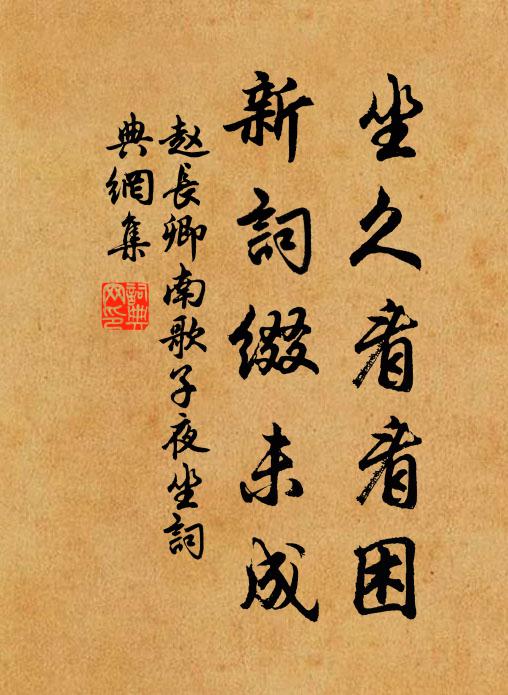 坐久看看困
新詞綴未成
赵長卿南歌子夜坐詞
典網集
詞典
网印